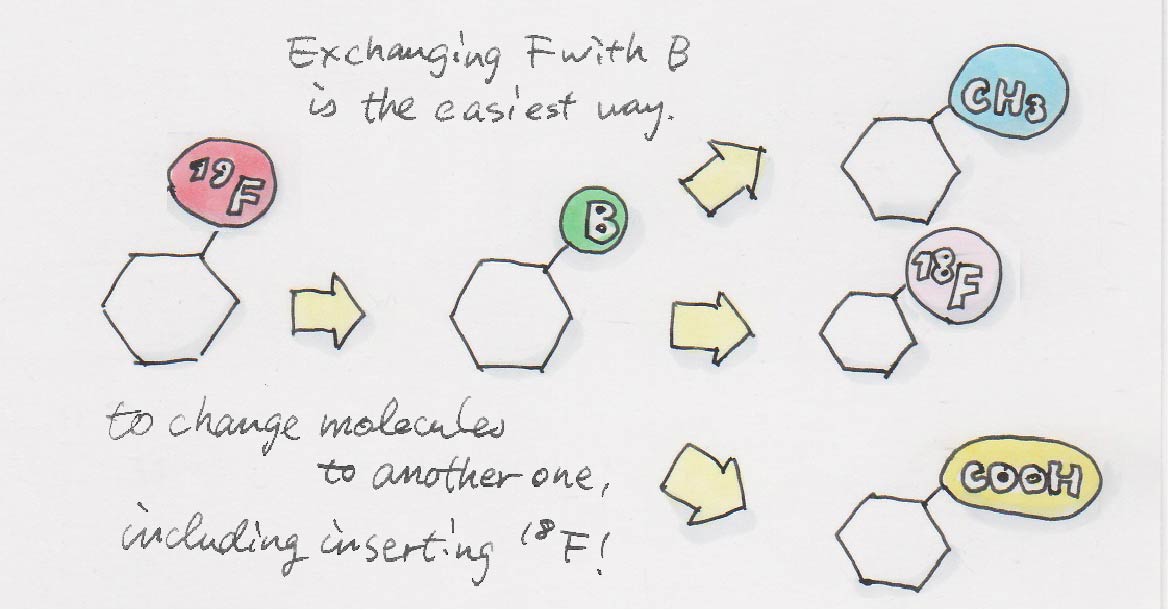 Exchanging F with B
is the easiest way.
CH3
19F
B
18F
to change molecules
to another one,
including inserting 18F!
COOH